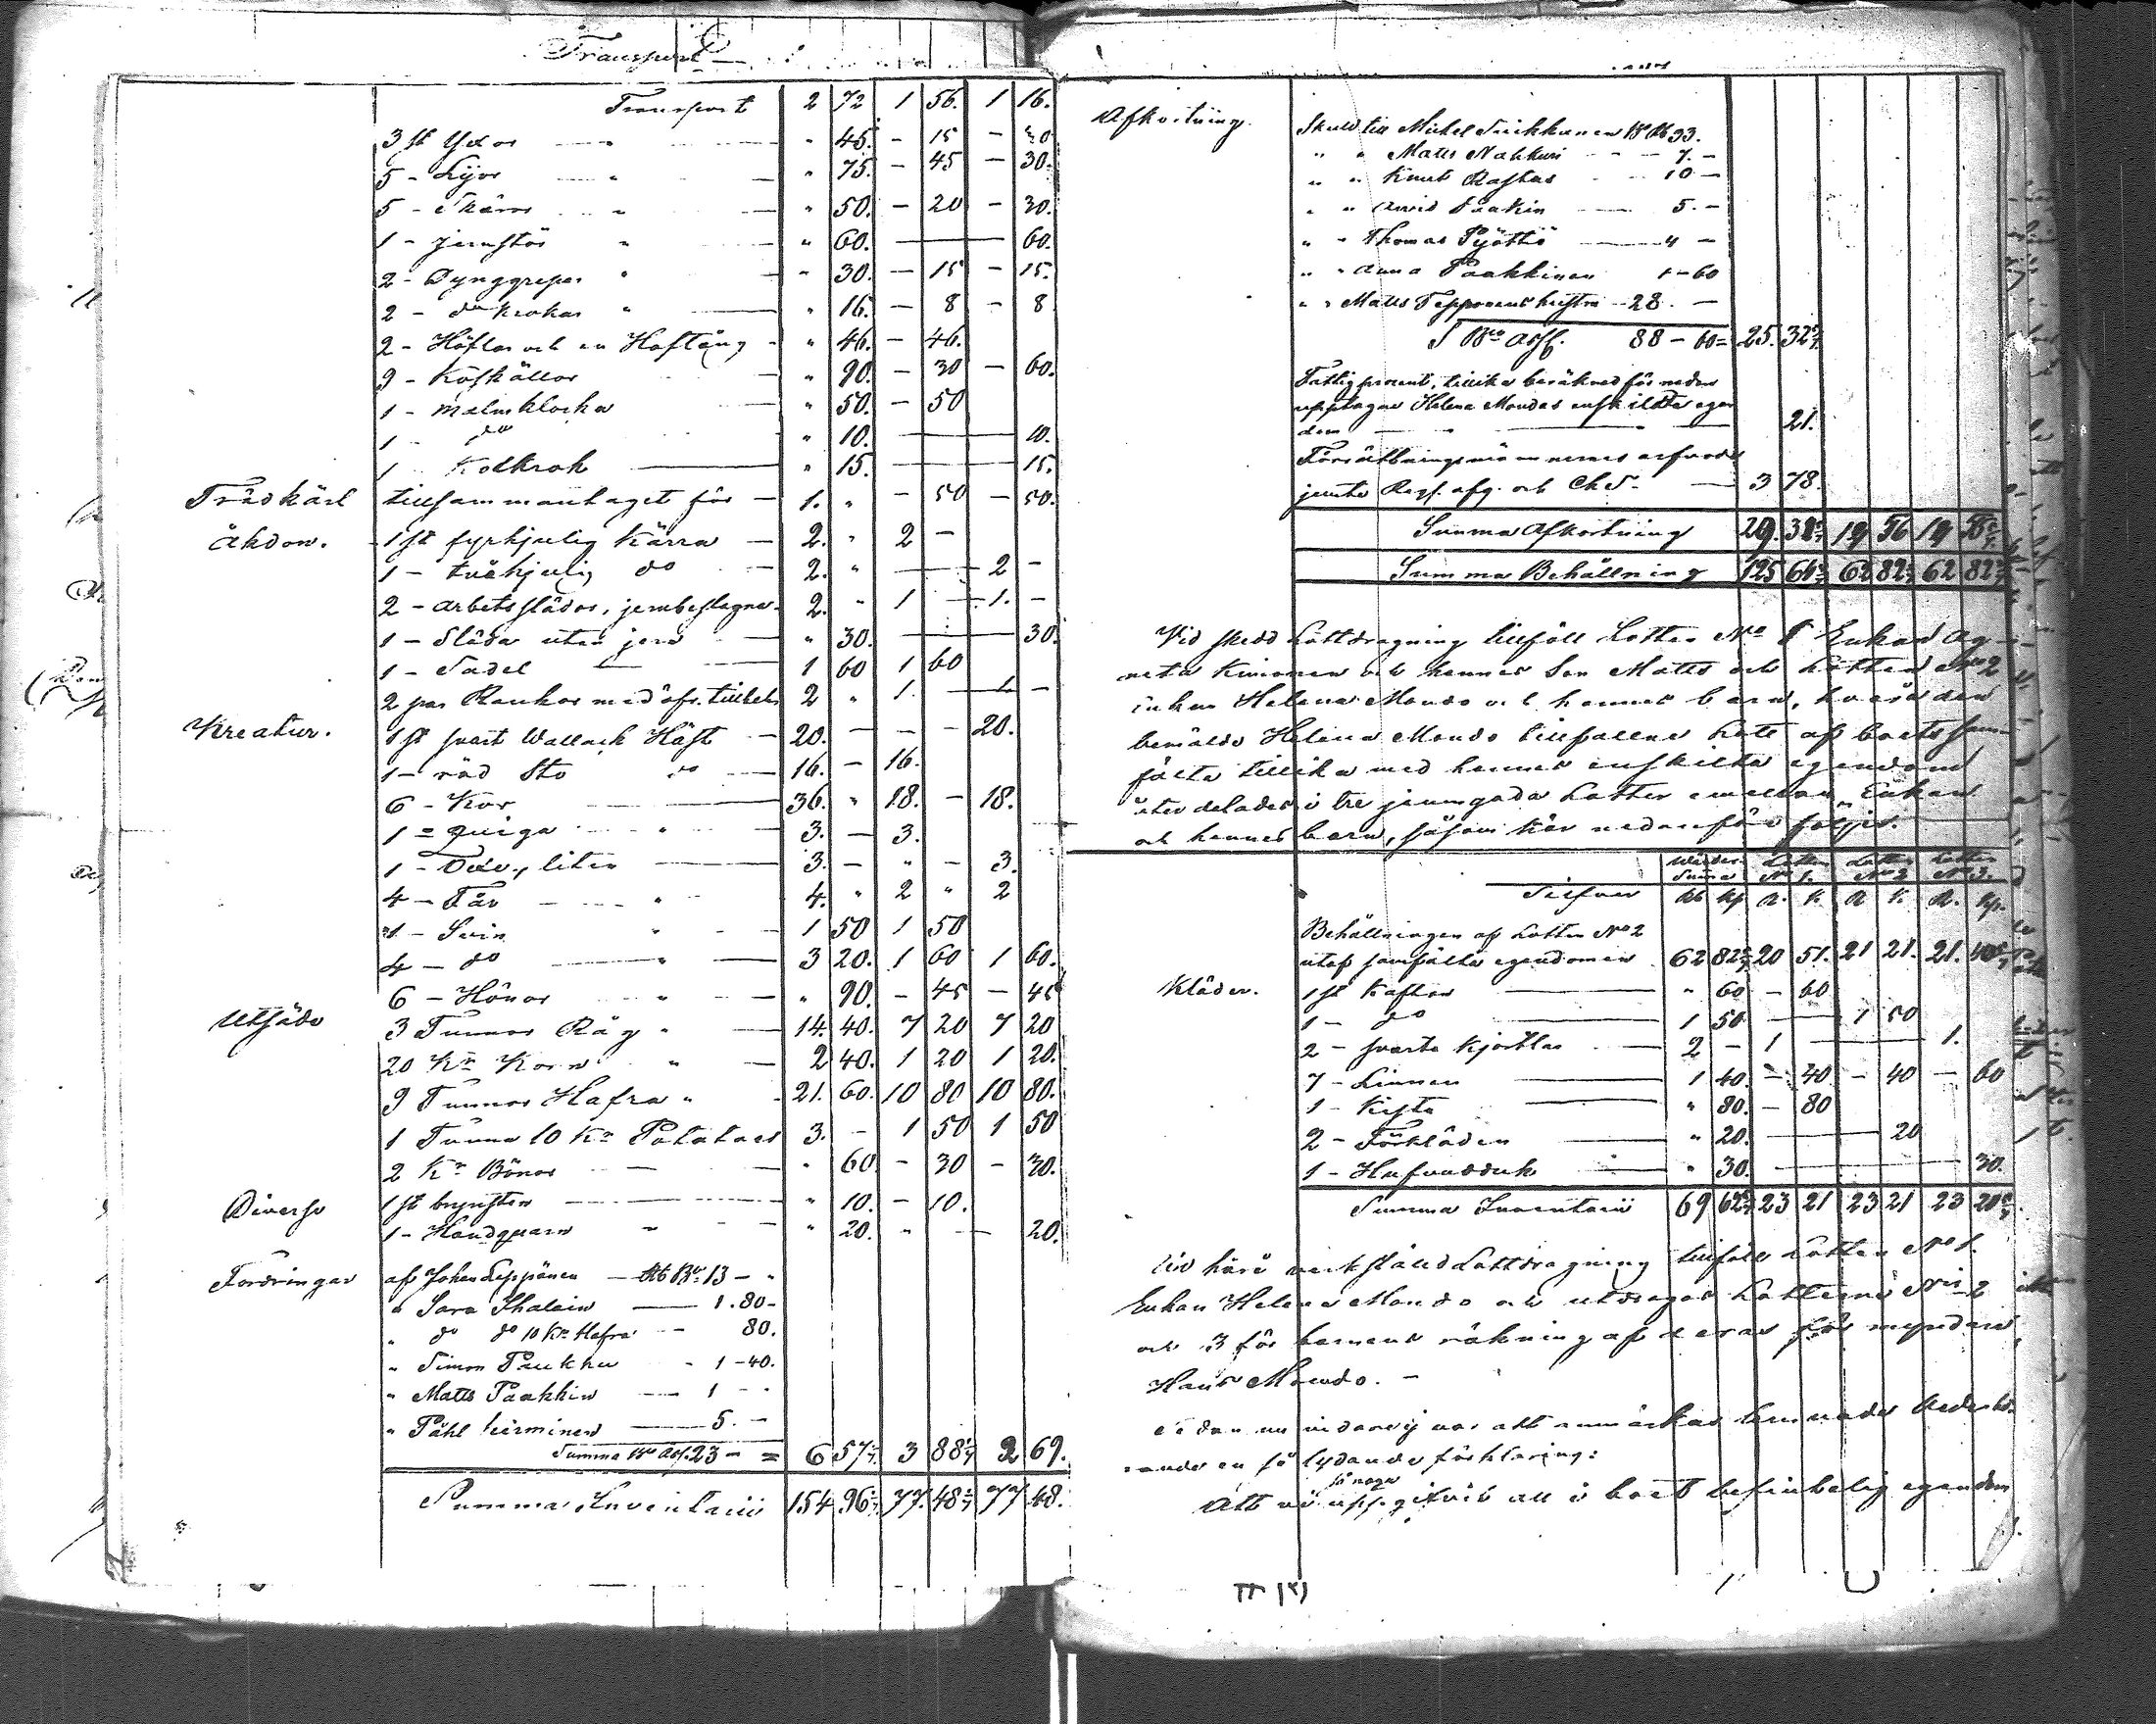 Transport
Transport 2 72 1 56. 1 16.
3 st Yxor " 45. - 15 - 30
5 - Lijor " 75. - 45 - 30.
5 - Skäror " 50. - 20 - 30.
1 - jernstör " 60. 60.
2 - Dynggrepar " 30. - 15 - 15.
2 - do krokar " 16. - 8 - 8
2 - Höflar och en Hoftång " 46. - 46.
9 - Koskällor " 90. - 30 - 60.
1 - Malmklocka " 50. - 50
1 - do " 10. 10.
1 - Kolkrok " 15. 15.
Trädkärl tillsammantaget för 1. " - 50 - 50.
Åkdon. 1 st fyrhjulig Kärra 2. " 2 -
1 - tvåhjulig do 2. " 2 -
2 - arbetsslädor, jernbeslagna 2. " 1 1. -
1 - Släda utan jern " 30. 30.
1 - Sadel 1 60 1 60
2 par Rankor med öfr. tillbeh 2 " 1. 1 -
Kreatur. 1 st svart Wallack Häst 20. 20.
1 - röd Sto do 16. - 16.
6 - Kor 36. " 18. - 18.
1 - Quiga " 3. - 3.
1 - liten 3. - " - 3.
4 - Får " 4. " 2 " 2
1 - Svin " 1 50 1 50
4 - do " 3 20. 1 60 1 60.
6 - Hönor " 90. - 45 - 45
Utsäde 3 Tunnor Råg " 14. 40. 7 20 7 20
20 Kr Korn " 2 40. 1 20 1 20.
9 Tunnor Hafra " 21. 60. 10 80 10 80.
1 Tunna 10 Kr Potatoes 3. - 1 50 1 50
2 Kr Bönor " 60 - 30 - 30.
Diverse 1 st brynsten " 10. - 10.
1 - Handquarn " 20. " 20.
Fordringar af Johan Leppänen 13 -
" Sara Ihalain 1.80 -
" do do 10 Kr Hafra 80.
" Simon Paukku 1 - 40.
" Matts Paakkin 1 -
" Påhl Hirminen 5. -
Summa Bco Ass. 23 - = 6 57 1/7 3 88 1/7 2 69.
Summa Inventarii 154. 96 77. 48 77 48.
Afkortning. Skuld till Michel 33.
" " Matts Nakkuri 7. -
" " Knut Rastas 10 -
" " Arvid Paakin 5. -
" " Thomas Pyöttiö 4 -
" " Anna Paakkinen 1 - 60
" " Matts Tepponens hustru 28. -
S Bco Ass. 88 - 60 = 25. 32
Fattigprocent, tillika beräknad för nedan
upptagne Helena Mondos enskildta egen
dom 21.
Förrättningsmännernes arfvode
jemte afg. och Ch S. 3 78.
Summa Afkortning 29. 32 19 56 19 56
Summa Behållning 125 64 62 82 62 82
Vid skedd Lottdragning tillföll Lotten No 1 Enkan Ag-
neta Kinonen och hennes Son Matts och Lotten No 2
enkan Helena Mondo och hennes barn, hvarå den
bemälde Helena Mondo tillfallne Lott af boets sam
fälta tillika med hennes enskilta egendom
åter delades i tre jemngoda Lotter emellan Enkan
och hennes barn, såsom här nedanföre följer.
Silfver Wärder. Summa Lotten No 1. Lotten No 2 Lotten No 3.
Rb Kp R. K. R K. R. Kp.
Behållningen af Lotten No 2
utaf samfälta egendomen 62 82 20 51. 21 21. 21. 10
Kläder. 1 st Kaftan " 60 - 60
1 - do 1 50 1 50
2 - svarta Kjortlar 2 - 1 1.
7 - Linnen 1 40. - 40. - 40 - 60
1 - Kista " 80. - 80
2 - Förkläden " 20. 20
1 - Hufvudduk " 30. 30.
Summa Inventarii 69 62 23 21 23 21 23 20
Vid härå verkställd Lottdragning tillföll Lotten No 1.
Enkan Helena Mondo och utdrogos Lotterne Nris 2
och 3 för barnens räkning af deras förmyndare
Hans Mondo. -
Sedan nu vidare ej var att anmärkas lemnades
rande en så lydande förklaring:
Att vi uppgifvit all i boet befintelig egendom
så noga